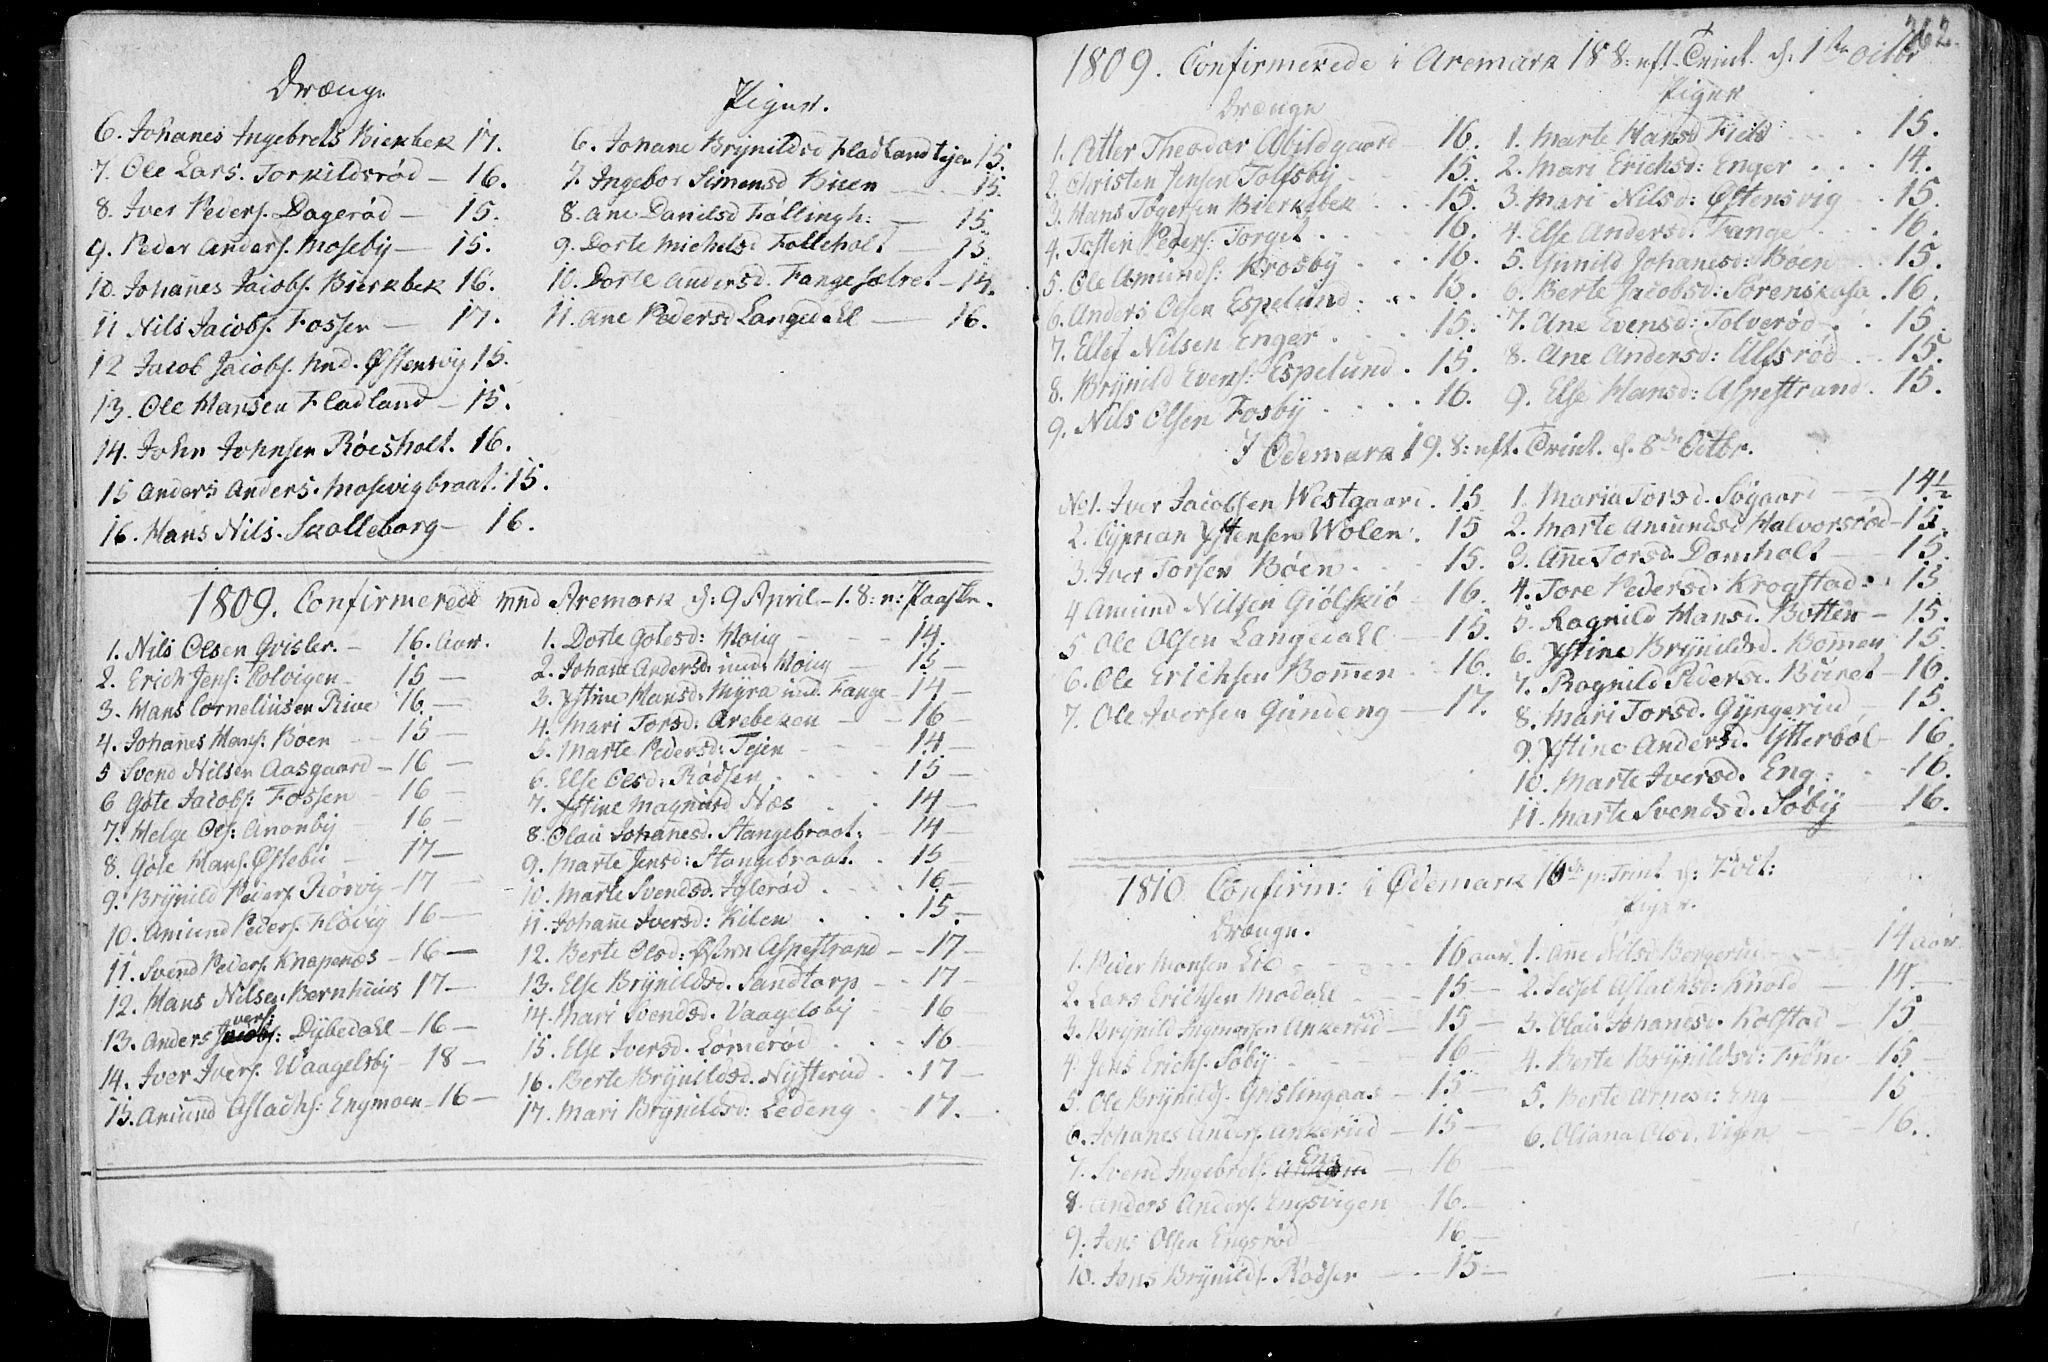 Drænge
6. Johanes Ingebrets Bierkbek 17.
7. Ole Lars. Torkildsrød – 16.
8. Iver Peders. Dagerød – 15.
9. Peder Anders. Moseby – 15.
10. Johanes Jacobs. Bierkbek 16.
11 Nils Jacobs. Fosser – 17.
12 Jacob Jacobs. und. Østensvig 15.
13. Ole Hansen Fladland – 15.
14. John Johnsen Röesholt. 16.
15 Anders Anders. Mosevigbraat. 15.
16. Hans Nils. Skolleborg – 16.
Piger.
6. Johane Brynildsd Fladlandtejer 15.
7. Ingebor Simensd Buen – 15.
8. Ane Danilsd Föllingh: – 15.
9. Dorte Michelsd Tolleholt 15
10. Dorte Andersd. Fangesætret – 14.
11. Ane Pedersd Langedahl – 16.
1809. Confirmerede und Aremark d: 9 April – 1. S: n: Paaske.
1. Nils Olsen Gvisler. – 16. Aar.
2. Erich Jens: Colvigen – 15 –
3. Hans Corneliusen Rive 16. –
4. Johanes Hans: Böen – 15 –
5 Svend Nilsen Aasgaard – 16 –
6 Göte Jacobs: Fossen – 16 –
7. Helge Ols: Ananby 16 –
8. Göte Hans. Östebü – 17 –
9. Brynild Peders. Rörvig – 17 –
10. Amund Peders. Flövig 16 –
11. Svend Peders. Knapenæs – 16 –
12. Hans Nilsen Bernhuus 17 –
13. Anders Ivers: Dybedahl – 16 –
14. Iver Ivers. Waagelsby – 18 –
15. Amund Aslachs: Engmoen – 16 –
1. Dorte Gotesd: Moug – 14.
2. Johane Andersd. und. Moug – 15 –
3. Ystine Hansd. Myra und. Fange – 14 –
4. Mari Torsd: Arebekken – 16 –
5. Marte Pedersd: Tejen – 14 –
6. Else Olsd: Rödsen . 15 –
7. Ystine Magnusd Næs . 14 –
8. Olau Johanesd. Stangebraat: – 14 –
9. Marte Jensd: Stangebraat. . 15
10. Marte Svendsd. Igleröd . 16 –
11. Johane Iversd: Kilen . 15. –
12. Berte Olsd: Aspestrand – 17 –
13. Else Brynildsd. Sandtorp – 17 –
14. Mari Svendsd. Vaagelsby – 16 –
15. Else Iversd. Lömeröd . 16 –
16. Berte Brynildsd. Nysterud . 17 –
17. Mari Brynildsd: Ledeng . 17.
262.
1809. Confirmerede i Aremark 18 S: eft. Trint. d. 1ste Octbr
Drænge
1. Peter Theodor Abildgaard – 16.
2. Christen Jensen Tolfsby – 15.
3. Hans Tögersen Bierkebek . 15.
4. Tosten Peders: Torget . 16.
5. Ole Amunds: Krosby . 16.
6. Anders Olsen Espelund . 15.
7. Ellef Nilsen Enger . 15.
8. Brynild Evens: Espelund . 15.
9. Nils Olsen Fosby . 16.
Piger
1. Marte Hansd Field . 15.
2. Mari Erichsd: Enger . 14.
3. Mari Nilsd: Östensvig . 15.
4. Else Andersd. Fange . 16.
5. Gunild Johanesd: Böen . 15.
6. Berte Jacobsd: Sörenskasa . 16.
7. Ane Evensd: Tolveröd . 15.
8. Ane Andersd: Ulfsröd . 15.
9. Else Hansd: Aspestrand . 15.
I Ödemark 19. S: eft. Trint. d. 8de Octbr.
No 1. Iver Jacobsen Westgaard . 15.
2. Cyprian Ystensen Wolen . 15
3. Iver Torsen Böen . 15.
4 Amund Nilsen Giölsiö – 16.
5 Ole Olsen Langedahl – 15.
6. Ole Erichsen Bomen . 16.
7. Ole Iversen Gundeng – 17.
1. Maria Torsd. Sögaard – 14½
2. Marte Amundsd Halvorsröd – 15
3. Ane Torsd. Damholt – 15.
4. Tore Pedersd. Krogstad . 15
5. Ragnild Hansd. Botten – 15.
6. Ystine Brynildsd. Bomen 15.
7. Ragnild Pedersd. Buret – 16.
8. Mari Torsd. Gyngerud – 15.
9. Ystine Andersd. Ytterböl – 16.
10. Marte Iversd. Eng . 16.
11. Marte Svendsd. Söby – 16.
1810 Confirm: i Ødemark 16de p: Trint d: 7 Oct:
Drænge.
1. Peder Monsen Lie – 16 aar.
2. Lars Erichsen Modahl – 15 –
3. Brynild Ingmorsen Ankerüd – 15 –
4. Jens Erichs. Söby – 16 –
5. Ole Brynilds. Grislingaas – 15 –
6. Johanes Anders. Ankerüd – 15 –
7. Svend Ingebrets. Eng – 16
8. Anders Anders. Engsvigen 16. –
9. Jens Olsen Engsröd – 16 –
10. Jens Brynilds. Rödser – 15 –
Piger.
1. Ane Nilsd Bergerud – 14 aar.
2. Aslachsd: Knold – 14. –
3. Olau Johanesd. Kolstad – 15
4. Berte Brynildsd: Tröne – 15 –
5. Berte Arnesd: Eng – 15 –
6. Oliana Olsd. Vigen – 16.